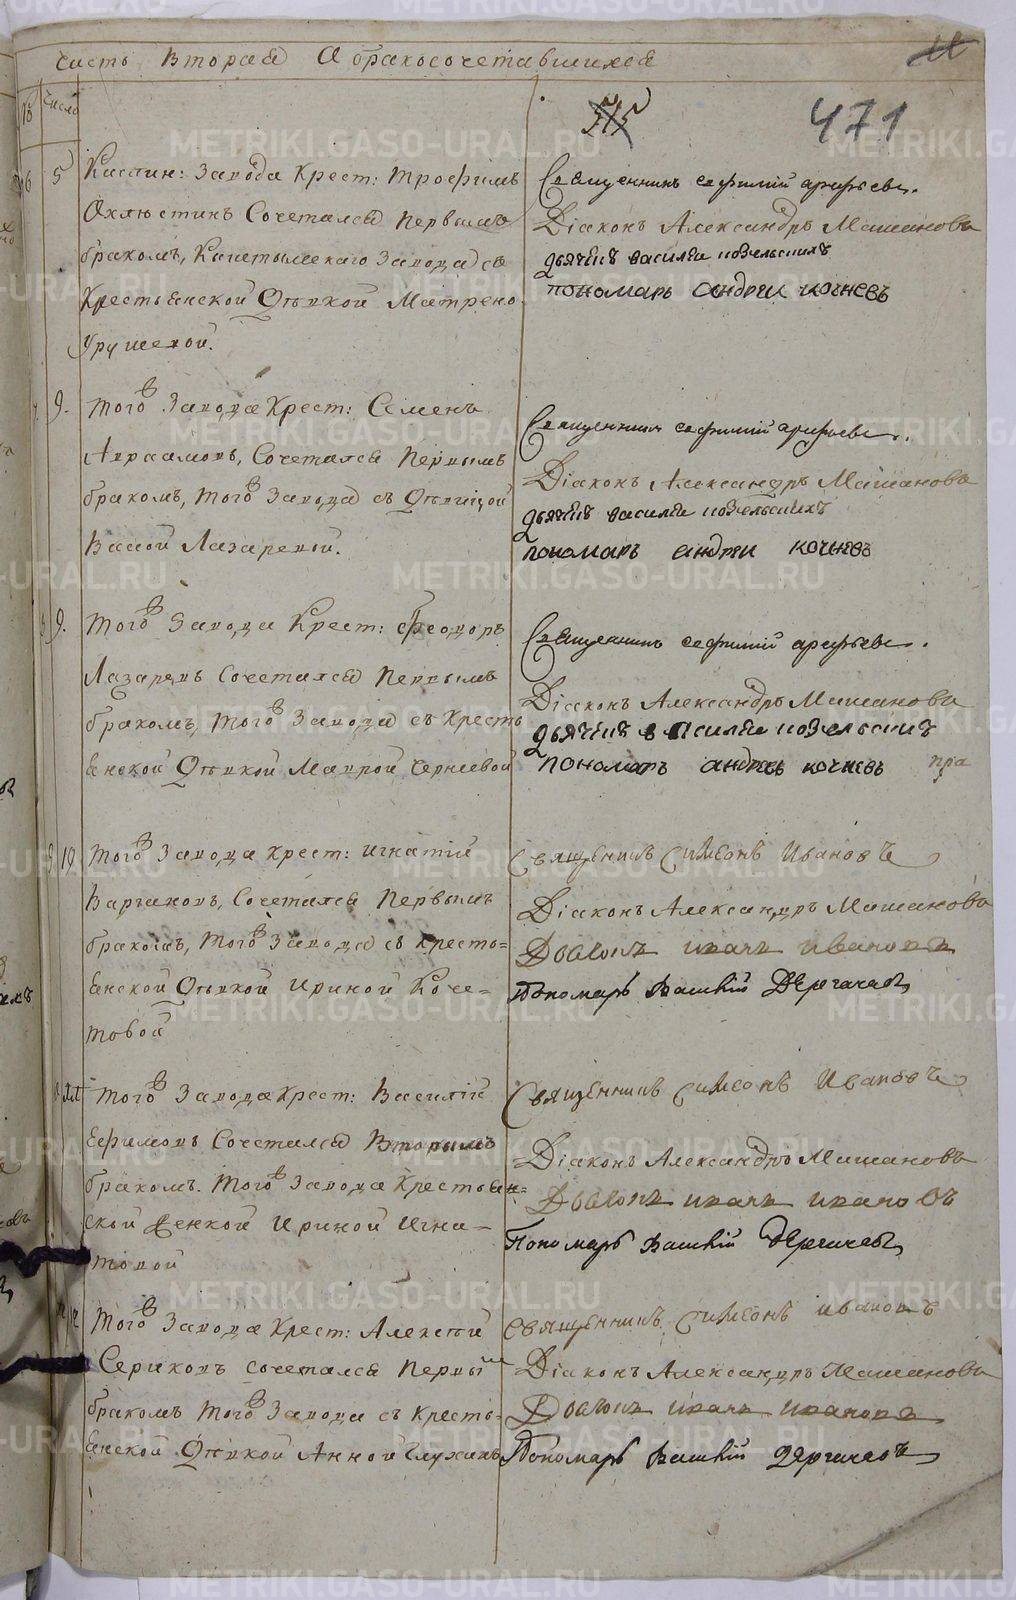 Часть Вторая О бракосочетавшихся
471
Число
5 Каслин: Завода Крест: Трофимъ
Охлюстинъ Сочетался Первымъ
бракомъ, Каштымскаго Завода съ
Крестьянской Дѣвкой Матреной
Священникъ Ефимий Арефьевъ.
Дiаконъ Александръ Машановъ
дьячекъ василей
пономарь андреи кочневъ
9. Того Завода Крест: Семенъ
Авраамовъ, Сочетался Первымъ
бракомъ, того Завода съ Дѣвицой
Вассой Лазаревой.
Священникъ Ефимий Арефьевъ.
Дiаконъ Александръ Машановъ
дьячекъ василей
пономарь андреи кочневъ
9. Того Завода Крест: Феодоръ
Лазаревъ Сочетался Первымъ
бракомъ, того Завода съ Кресть
янской Дѣвкой Маврой Черневой
Священникъ Ефимий Арефьевъ.
Дiаконъ Александръ Машановъ
дьячекъ василей
пономарь андреевъ кочневъ
10. Того Завода Крест: Игнатiй
Варгановъ, Сочетался Первымъ
бракомъ, того Завода съ кресть=
янской Дѣвкой Ириной Коче-
товой
Священникъ Симеонъ Ивановъ
Дiаконъ Александръ Машановъ
иванъ ивановъ
Пономарь Дергачевъ
Того Завода Крест: Василiй
Ефимовъ Сочетался Вторымъ
бракомъ. Того Завода Крестьян=
ской Женкой Ириной Игна-
товой
Священникъ Симеонъ Ивановъ
Дiаконъ Александръ Машановъ
иванъ ивановъ
Пономарь Дергачевъ
Того Завода Крест: Алексѣй
Сериковъ сочетался Первый
бракомъ того Завода съ Кресть-
янской Дѣвкой Анной
Священникъ Симеонъ Ивановъ
Дiаконъ Александръ Машановъ
иванъ ивановъ
Пономарь Дергачевъ
METRIKI.GASO-URAL.RU